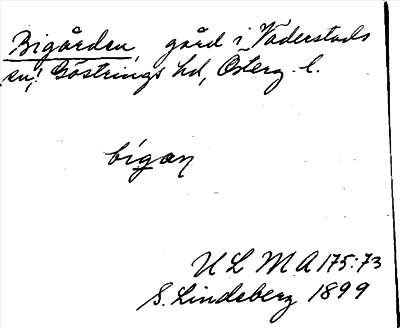 Bigården, gård i Väderstads
sn, Göstrings hd, Österg. l.
bígaṇ
ULMA 175:73
S. Lindeberg 1899